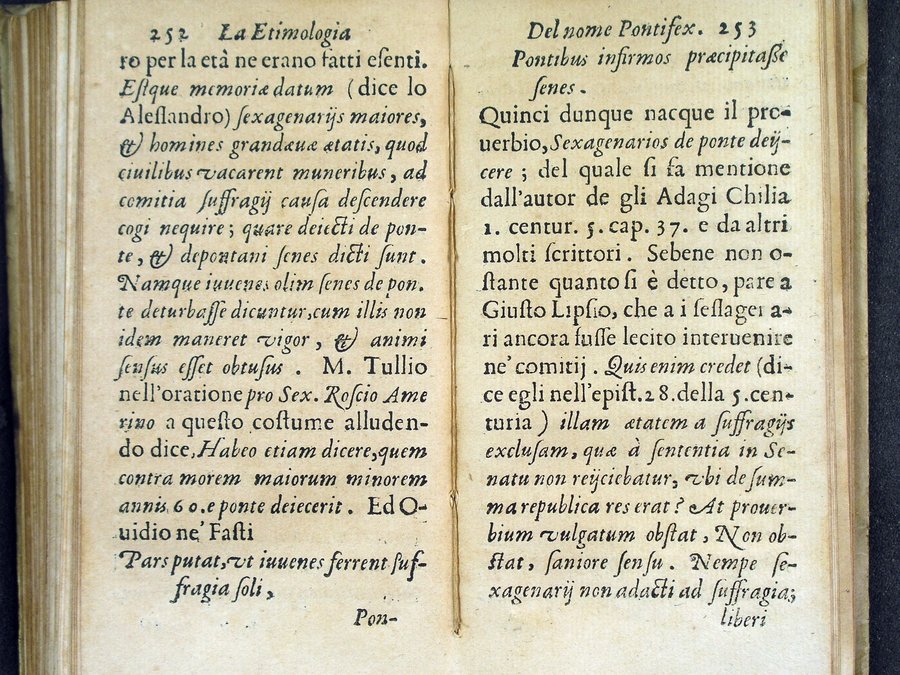 252 La Etimologia
ro per la età ne erano fatti esenti.
Eſtque memoriæ datum (dice lo
Aleſſandro) ſexagenarijs maiores,
& homines grandæuæ ætatis, quod
ciuilibus vacarent muneribus, ad
comitia ſuffragij cauſa deſcendere
cogi nequire; quare deiecti de pon-
te, & depontani ſenes dicti ſunt.
Namque iuuenes olim ſenes de pon.
te deturbaſſe dicuntur, cum illis non
idem maneret vigor, & animi
ſenſus eſſet obtuſus. M. Tullio
nell'oratione pro Sex. Roſcio Ame
rino a queſto coſtume alluden-
do dice, Habeo etiam dicere, quem
contra morem maiorum minorem
annis 60. e ponte deiecerit. Ed O-
uidio ne' Faſti
Pars putat, vt iuuenes ferrent ſuf-
fragia ſoli,
Pon-
Del nome Pontifex. 253
Pontibus infirmos præcipitaſſe
ſenes.
Quinci dunque nacque il pro-
uerbio, Sexagenarios de ponte deij-
cere; del quale ſi fa mentione
dall'autor de gli Adagi Chilia
1. centur. 5. cap. 37. e da altri
molti ſcrittori. Sebene non o-
ſtante quanto ſi è detto, pare a
Giuſto Lipſio, che a i ſeſſagena-
ri ancora fuſſe lecito interuenire
ne' comitij. Quis enim credet (di-
ce egli nell'epiſt. 28. della 5. cen-
turia) illam ætatem a ſuffragijs
excluſam, quæ à ſententia in Se-
natu non reijciebatur, vbi de ſum-
ma republica res erat? At prouer-
bium vulgatum obſtat, Non ob-
ſtat, ſaniore ſenſu. Nempe ſe-
xagenarij non adacti ad ſuffragia;
liberi